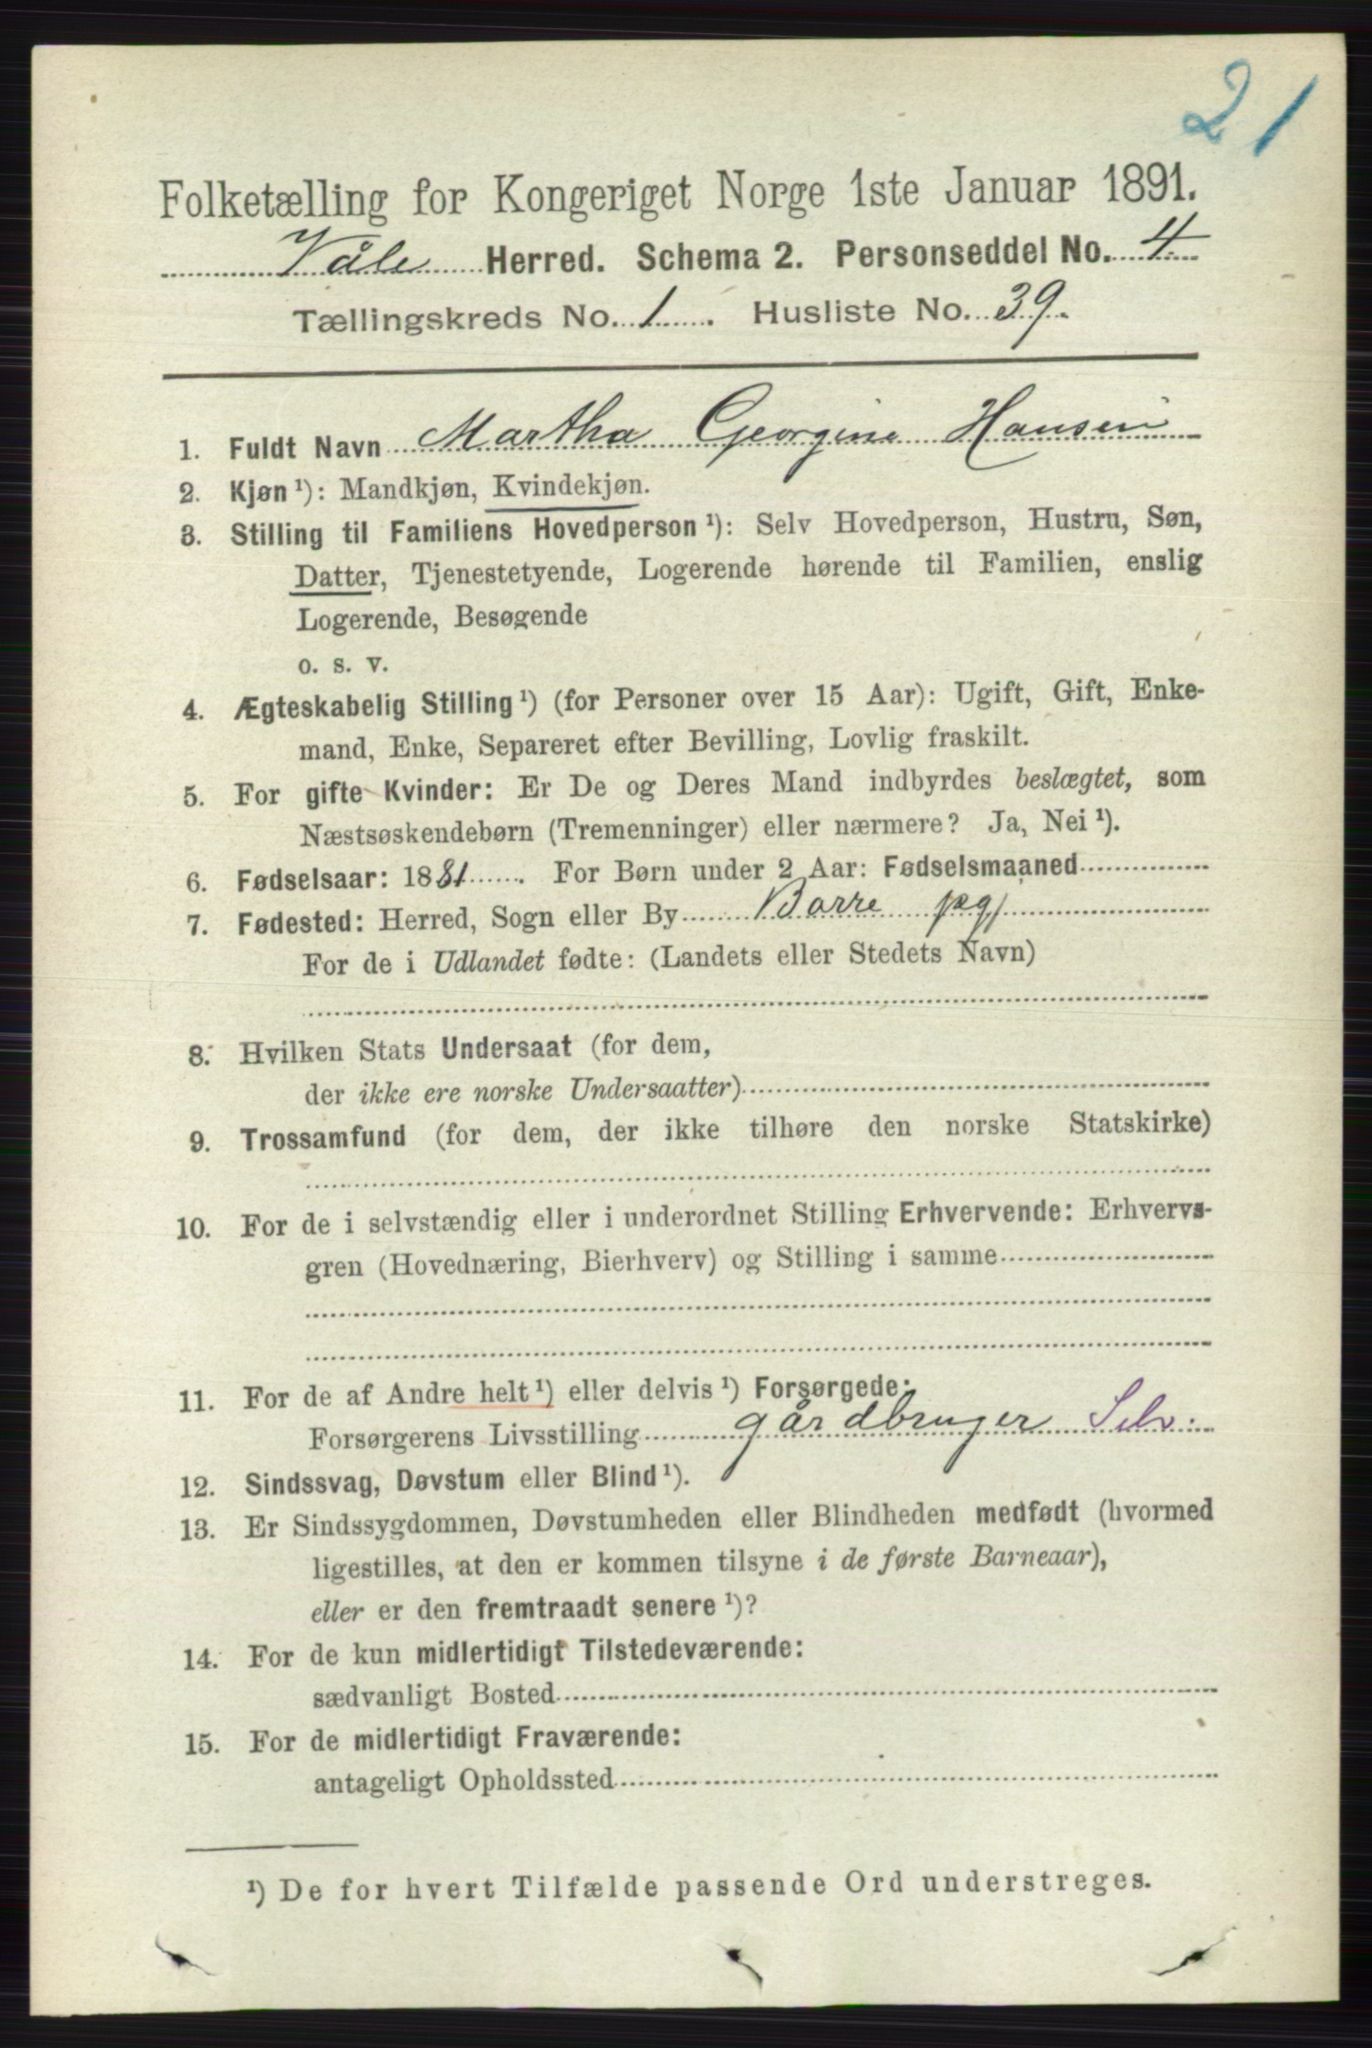 21
Folketælling for Kongeriget Norge 1ste Januar 1891.
Våle Herred. Schema 2. Personseddel No. 4
Tællingskreds No. 1. Husliste No. 39.
1. Fuldt Navn Martha Georgine Hansen
2. Kjøn ¹): Mandkjøn, Kvindekjøn.
3. Stilling til Familiens Hovedperson ¹): Selv Hovedperson, Hustru, Søn,
Datter, Tjenestetyende, Logerende hørende til Familien, enslig
Logerende, Besøgende
o. s. v.
4. Ægteskabelig Stilling ¹) (for Personer over 15 Aar): Ugift, Gift, Enke-
mand, Enke, Separeret efter Bevilling, Lovlig fraskilt.
5. For gifte Kvinder: Er De og Deres Mand indbyrdes beslægtet, som
Næstsøskendebørn (Tremenninger) eller nærmere? Ja, Nei ¹).
6. Fødselsaar: 1881. For Børn under 2 Aar: Fødselsmaaned
7. Fødested: Herred, Sogn eller By Borre pgj
For de i Udlandet fødte: (Landets eller Stedets Navn)
8. Hvilken Stats Undersaat (for dem,
der ikke ere norske Undersaatter)
9. Trossamfund (for dem, der ikke tilhøre den norske Statskirke)
10. For de i selvstændig eller i underordnet Stilling Erhvervende: Erhvervs-
gren (Hovednæring, Bierhverv) og Stilling i samme
11. For de af Andre helt ¹) eller delvis ¹) Forsørgede:
Forsørgerens Livsstilling gårdbruger Selv.
12. Sindssvag, Døvstum eller Blind ¹).
13. Er Sindssygdommen, Døvstumheden eller Blindheden medfødt (hvormed
ligestilles, at den er kommen tilsyne i de første Barneaar),
eller er den fremtraadt senere ¹)?
14. For de kun midlertidigt Tilstedeværende:
sædvanligt Bosted
15. For de midlertidigt Fraværende:
antageligt Opholdssted
¹) De for hvert Tilfælde passende Ord understreges.